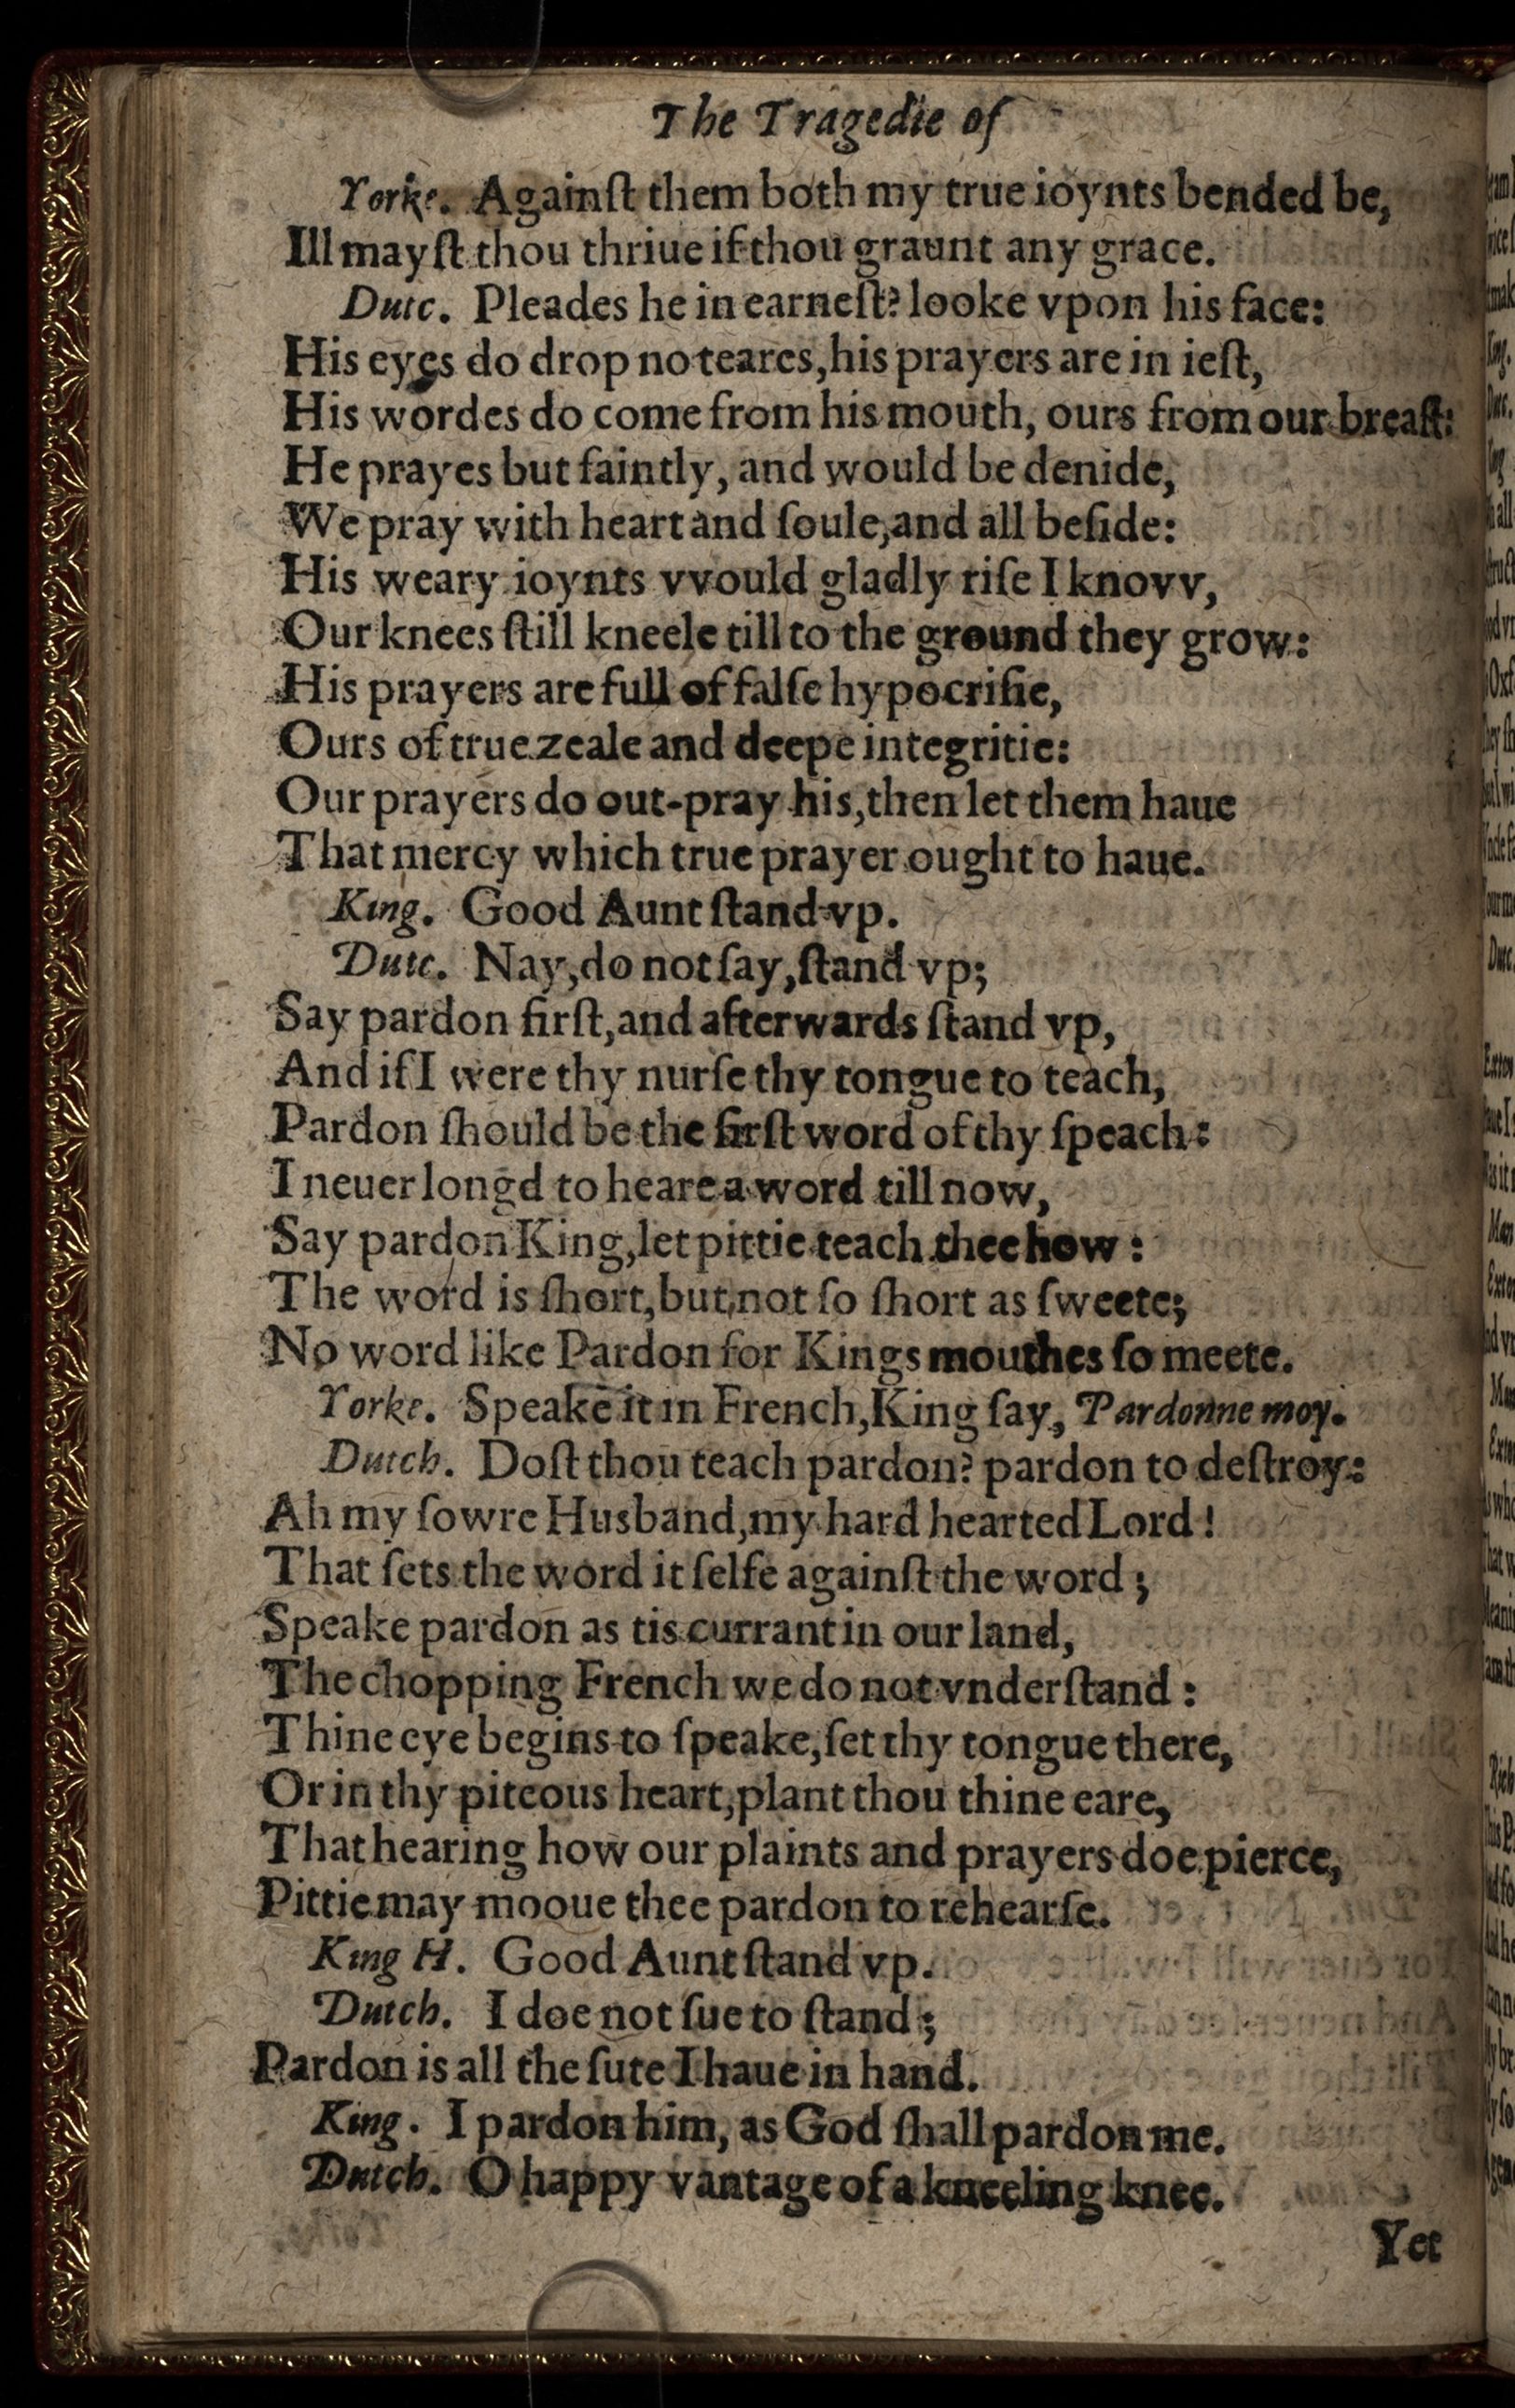 The Tragedie of
Yorke. Againſt them both my true ioynts bended be,
Ill mayſt thou thriue if thou graunt any grace.
Dutc. Pleades he in earneſt? looke vpon his face:
His eyes do drop no teares, his prayers are in ieſt,
His wordes do come from his mouth, ours from our breaſt:
He prayes but faintly, and would be denide,
We pray with heart and ſoule, and all beſide:
His weary ioynts vvould gladly riſe I knovv,
Our knees ſtill kneele till to the ground they grow:
His prayers are full of falſe hypocriſie,
Ours of true zeale and deepe integritie:
Our prayers do out-pray his, then let them haue
That mercy which true prayer ought to haue.
King. Good Aunt ſtand vp.
Dutc. Nay, do not ſay, ſtand vp;
Say pardon firſt, and afterwards ſtand vp,
And if I were thy nurſe thy tongue to teach,
Pardon ſhould be the firſt word of thy ſpeach:
I neuer longd to heare a word till now,
Say pardon King, let pittie teach thee how:
The word is ſhort, but not ſo ſhort as ſweete;
No word like Pardon for Kings mouthes ſo meete.
Yorke. Speake it in French, King ſay, Pardonne moy.
Dutch. Doſt thou teach pardon? pardon to deſtroy:
Ah my ſowre Husband, my hard hearted Lord!
That ſets the word it ſelfe againſt the word;
Speake pardon as tis currant in our land,
The chopping French we do not vnderſtand:
Thine eye begins to ſpeake, ſet thy tongue there,
Or in thy piteous heart, plant thou thine eare,
That hearing how our plaints and prayers doe pierce,
Pittie may mooue thee pardon to rehearſe.
King H. Good Aunt ſtand vp.
Dutch. I doe not ſue to ſtand;
Pardon is all the ſute I haue in hand.
King. I pardon him, as God ſhall pardon me.
Dutch. O happy vantage of a kneeling knee.
Yet